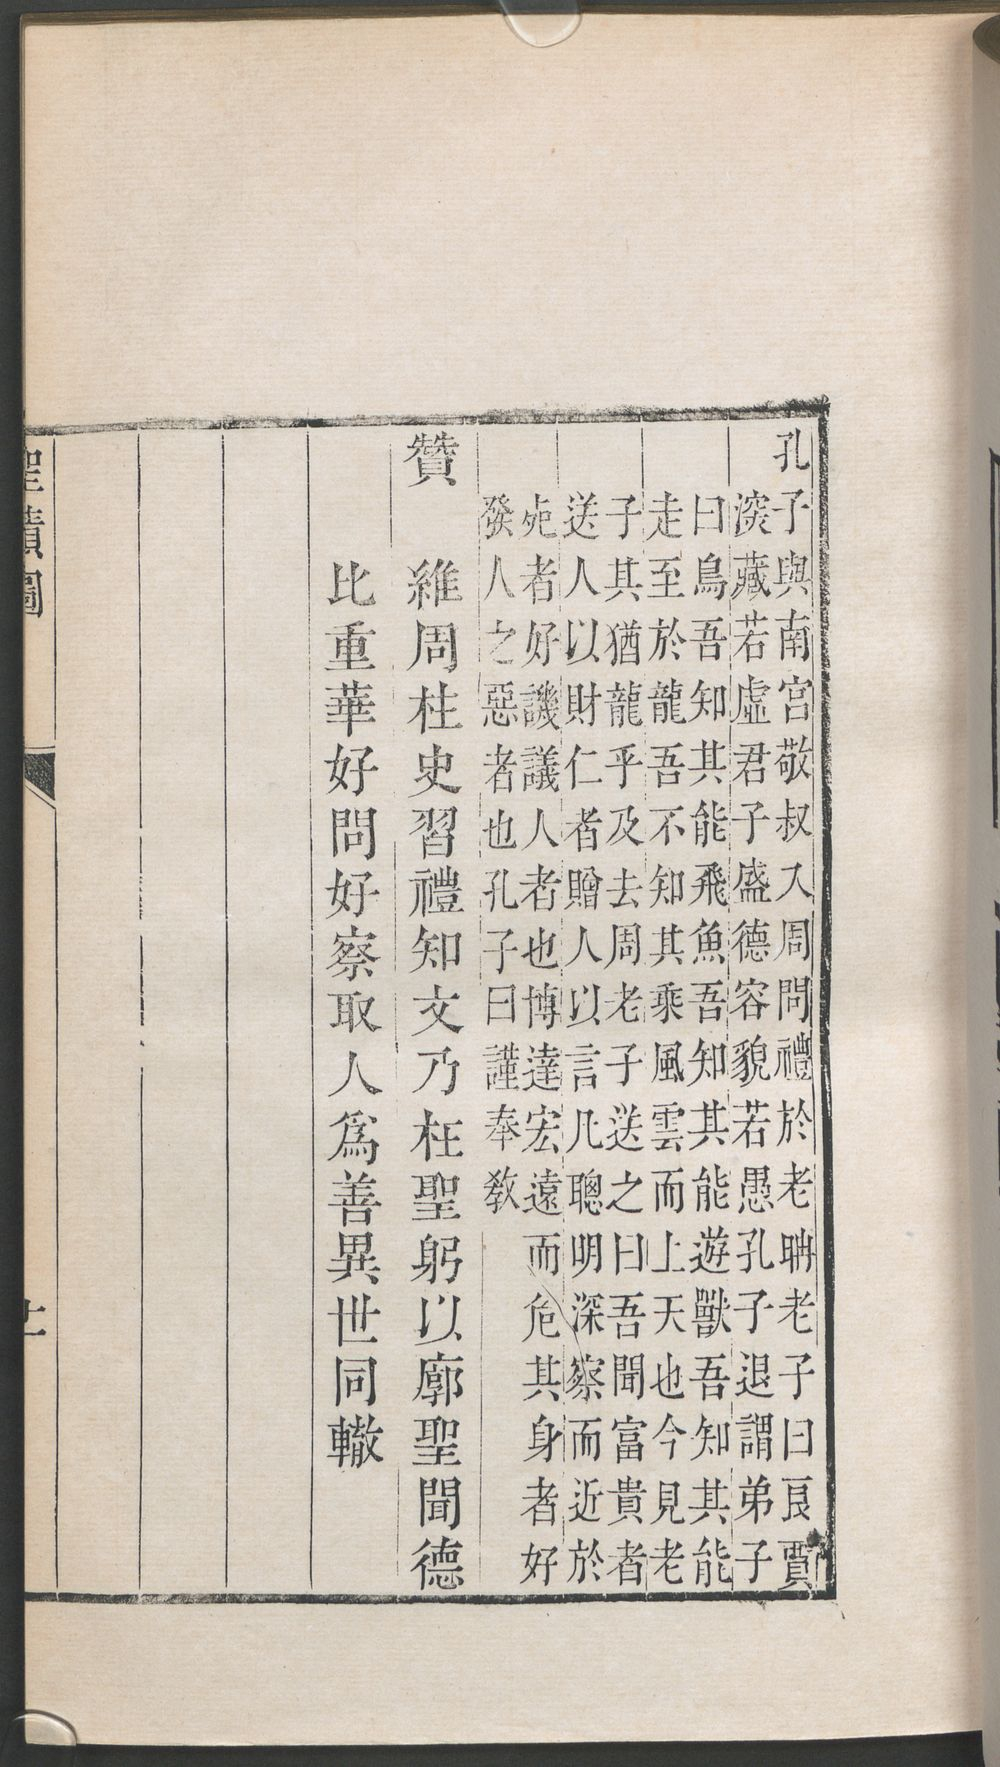 孔子與南宮敬叔入周問禮於老聃老子曰良賈
深藏若虛君子盛德容貌若愚孔子退謂弟子
曰鳥吾知其能飛魚吾知其能遊獸吾知其能
走至於龍吾不知其乘風雲而上天也今見老
子其猶龍乎及去周老子送之曰吾聞富貴者
送人以財仁者贈人以言凡聰明深察而近於
死者好譏議人者也博達宏遠而危其身者好
發人之惡者也孔子曰謹奉敎
贊　維周柱史習禮知文乃枉聖躬以廓聖聞德
比重華好問好察取人爲善異世同轍
聖蹟圖